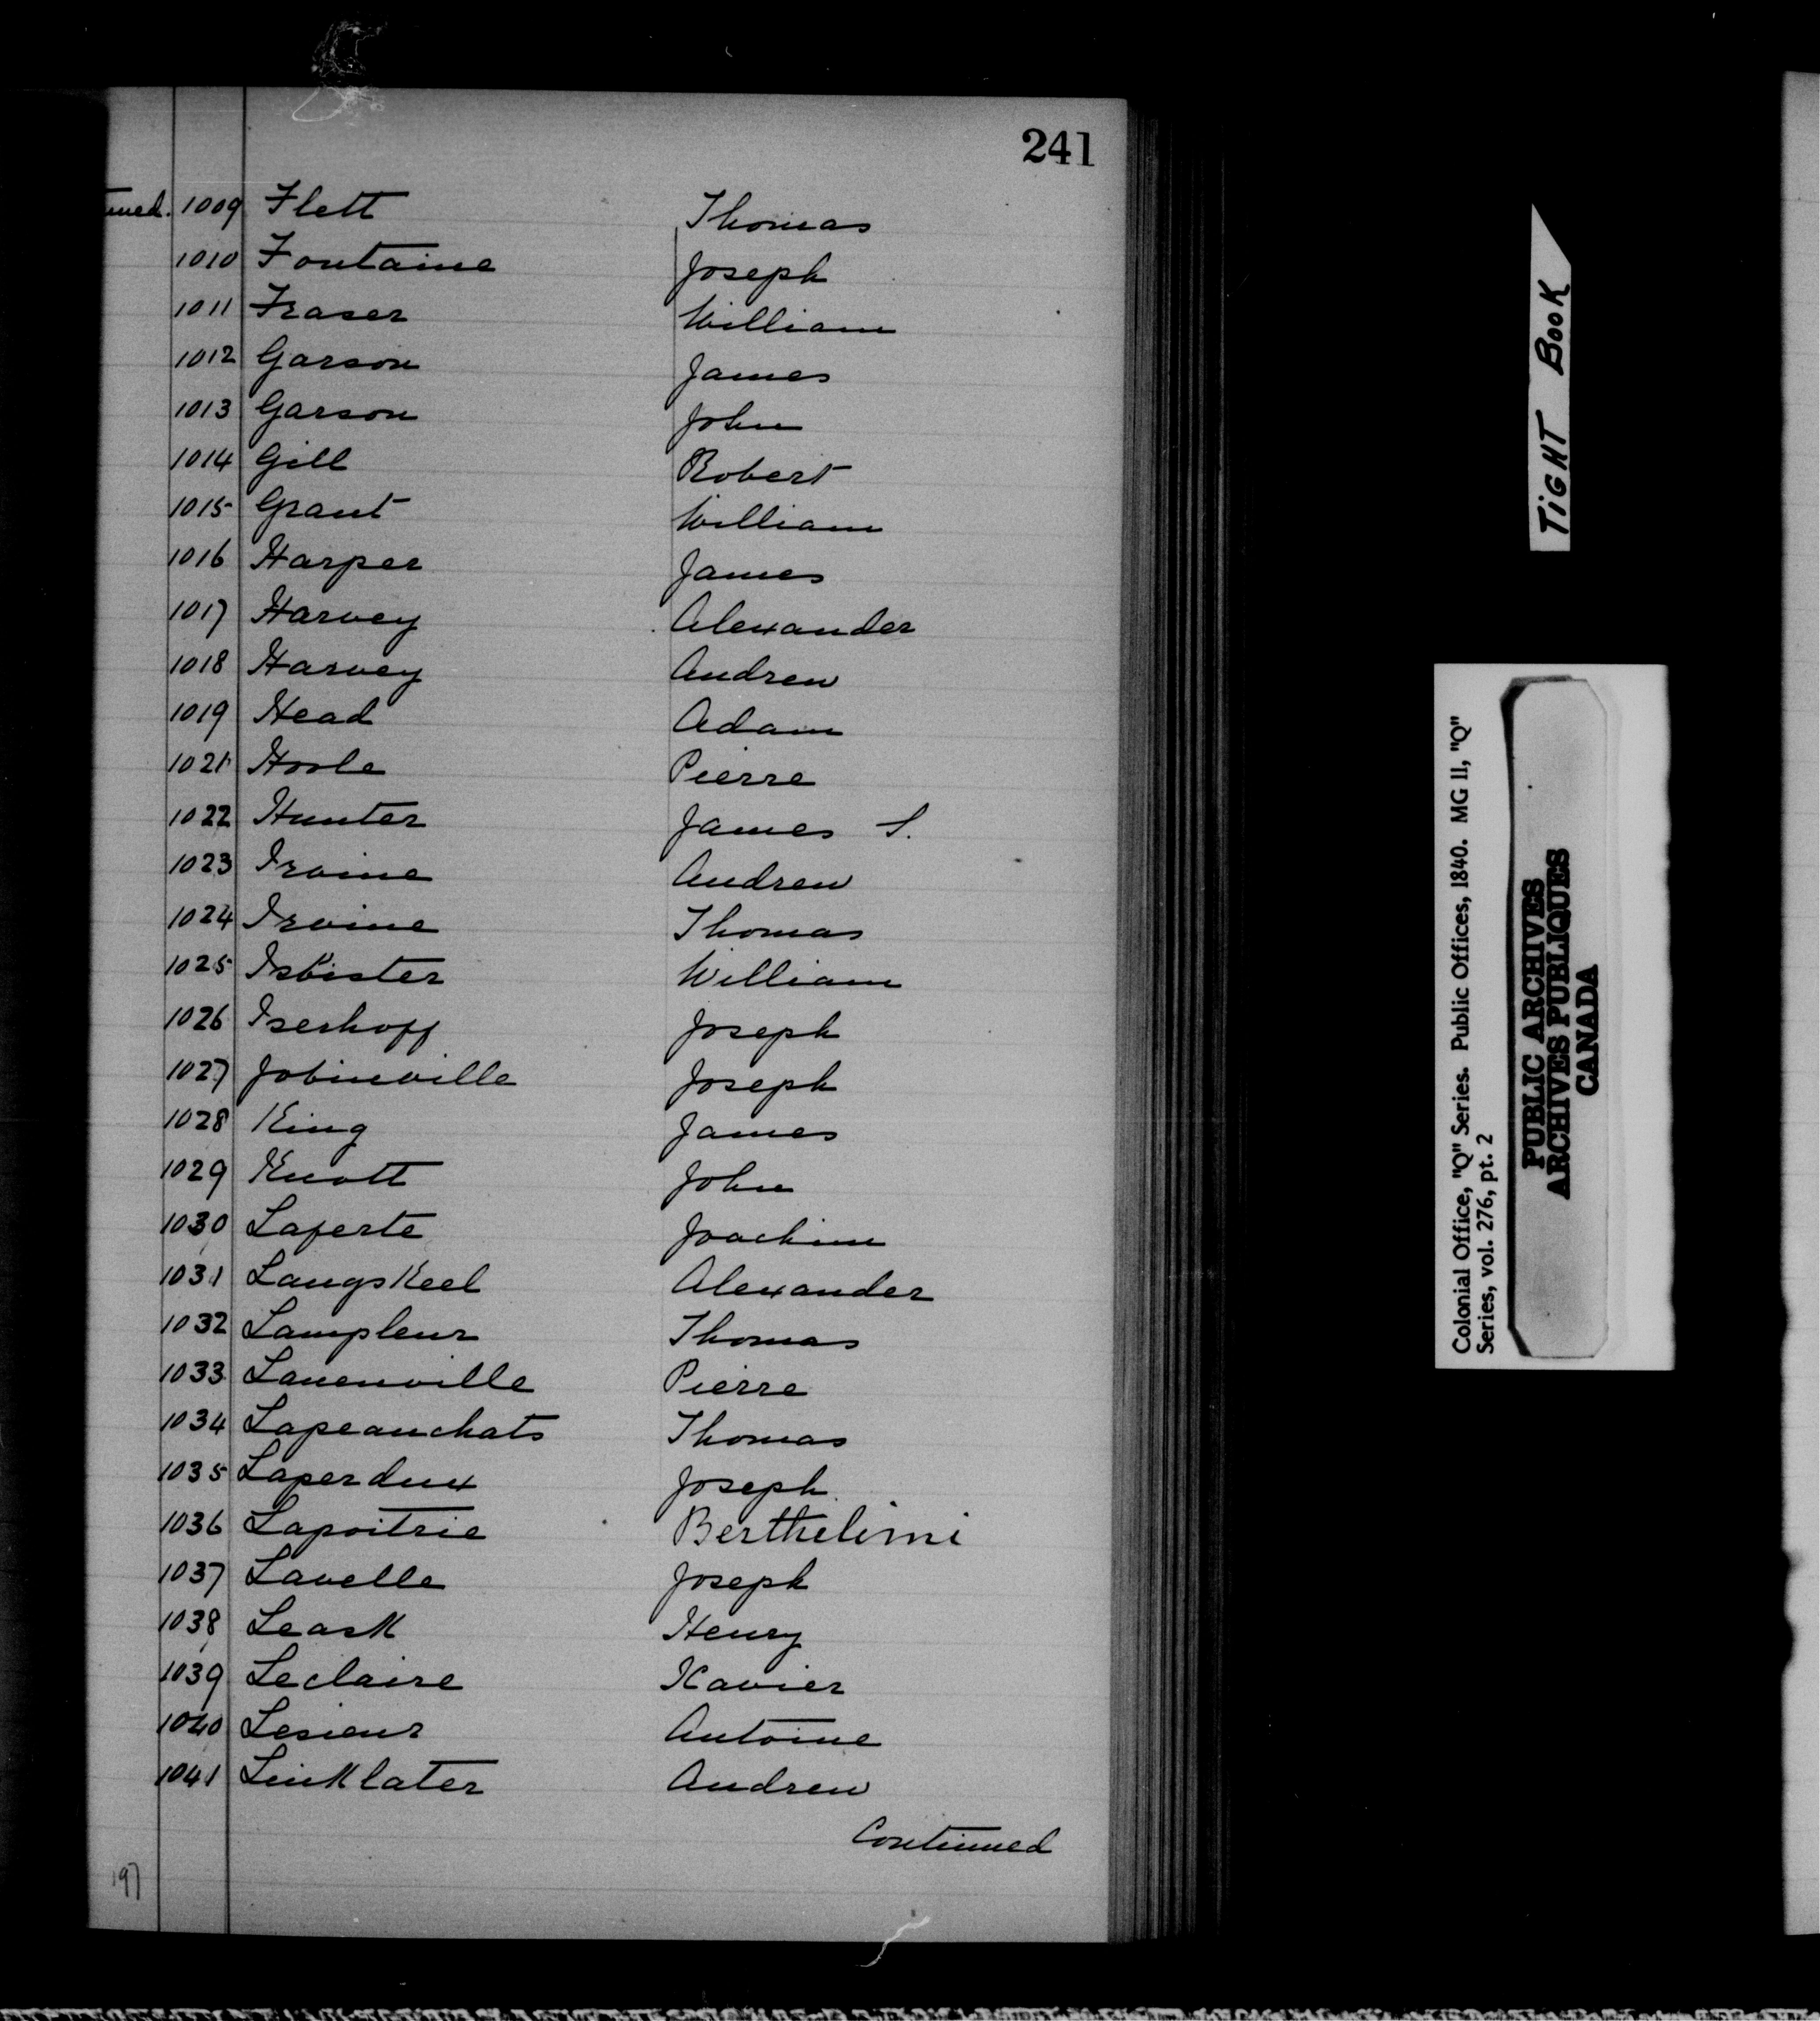 241
1009 Flett Thomas
1010 Fontaine Joseph
1011 Fraser William
1012 Garson James
1013 Garson John
1014 Gill Robert
1015 Grant William
1016 Harper James
1017 Harvey Alexander
1018 Harvey Andrew
1019 Head Adam
1021 Hoole Pierre
1022 Hunter James S.
1023 Irvine Andrew
1024 Irvine Thomas
1025 Isbister William
1026 Iserhoff Joseph
1027 Jobinville Joseph
1028 King James
1029 Knott John
1030 Laferte Joachim
1031 Langskeel Alexander
1032 Lampleur Thomas
1033 Lanenville Pierre
1034 Lapeauchats Thomas
1035 Laperdux Joseph
1036 Lapoitrie Berthelimi
1037 Lavelle Joseph
1038 Leask Henry
1039 Leclaire Xavier
1040 Lesieur Antoine
1041 Linklater Andrew
Continued
197
TIGHT BOOK
Colonial Office, "Q" Series. Public Offices, 1840. MG 11, "Q"
Series, vol. 276, pt. 2
PUBLIC ARCHIVES
ARCHIVES PUBLIQUES
CANADA